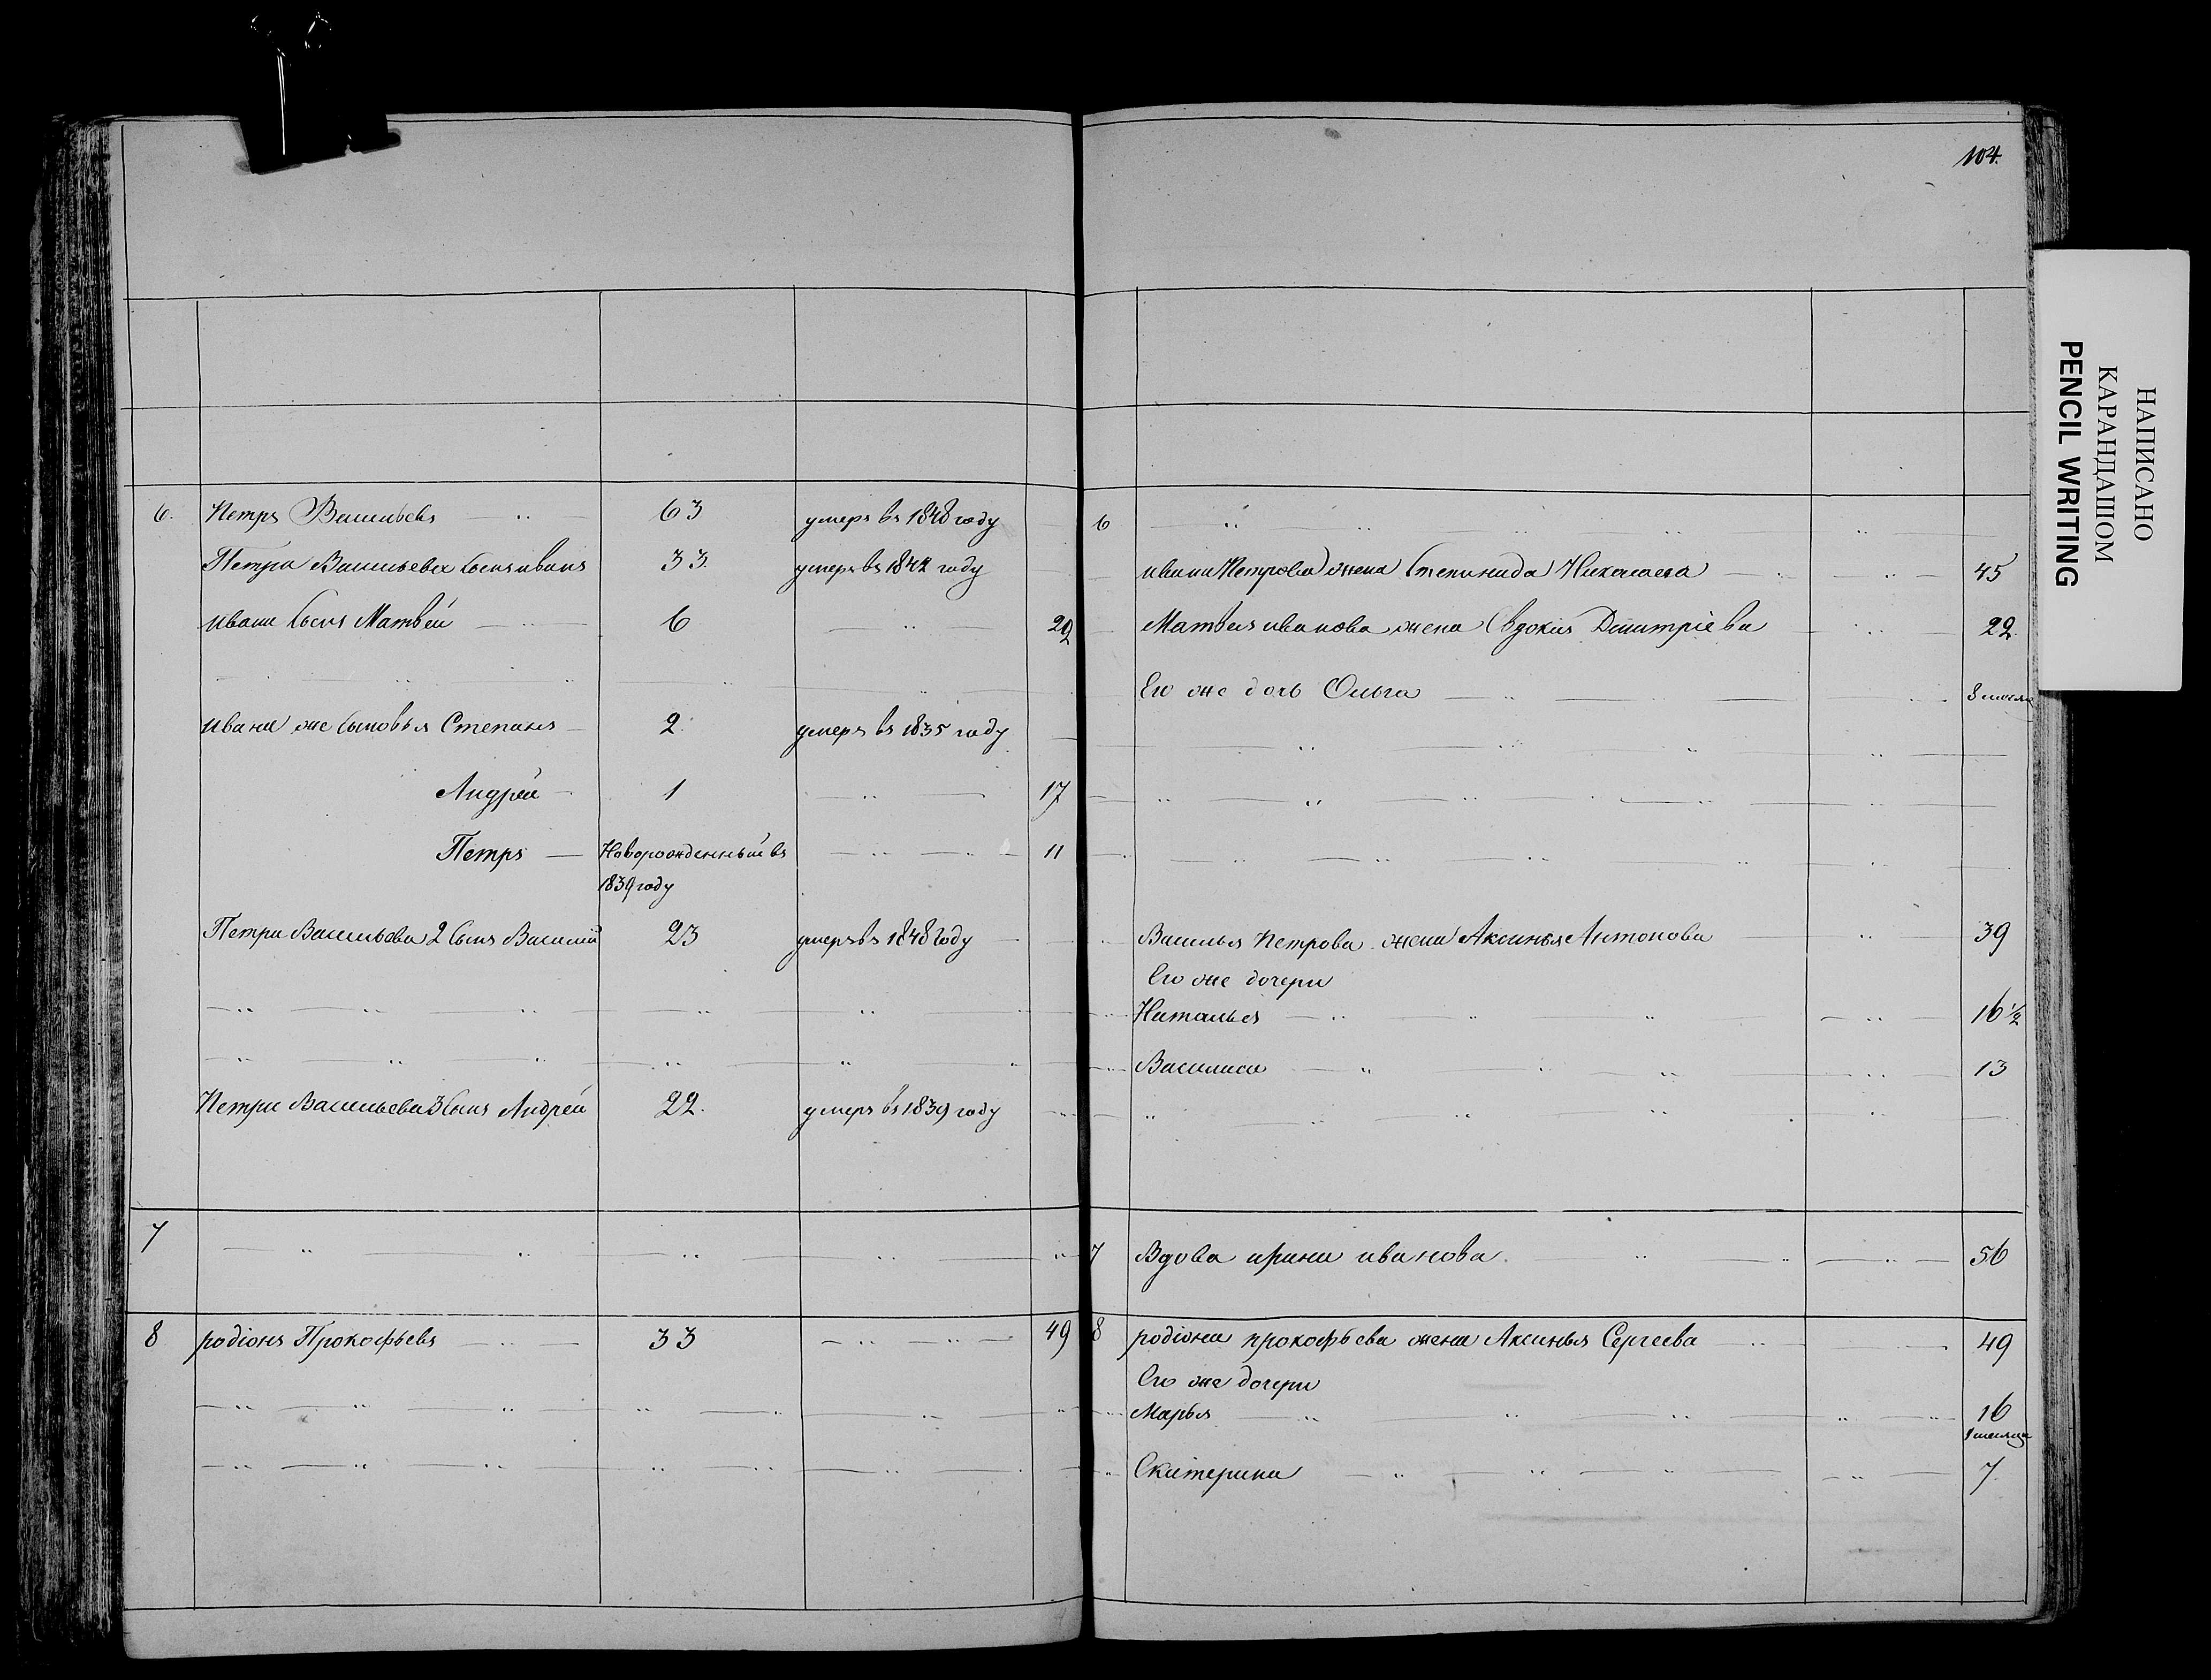 104.
НАПИСАНО
КАРАНДАШОМ
PENCIL WRITING
6. Петръ Васильевъ 63 умеръ въ 1848 году
Петра Васильева сынъ иванъ 33. умеръ въ 1844 году
ивана сынъ Матвѣй 6 22
ивана же сыновья Степанъ 2 умеръ въ 1835 году
Андрей 1 17
Петръ Новорожденный въ 11
1839 году
Петра Васильева 2 сынъ Василий 23 умеръ въ 1848 году
Петра Васильева 3 сынъ Андрей 22. умеръ въ 1839 году
7
8 родіонъ Прокофьевъ 33 49
6
ивана Петрова жена Степанида Николаева 45
Матвея иванова жена Евдокия Дмитріева 22.
Его же дочь Ольга 8 месяц
Василья Петрова жена Аксинья Антонова 39
Его же дочери
Наталья 16 1/2
Василиса 13
7 Вдова ирина иванова. 56
8 родіона прокофьева жена Аксинья Сергеева 49
Его же дочери
Марья 16
Екатерина 7